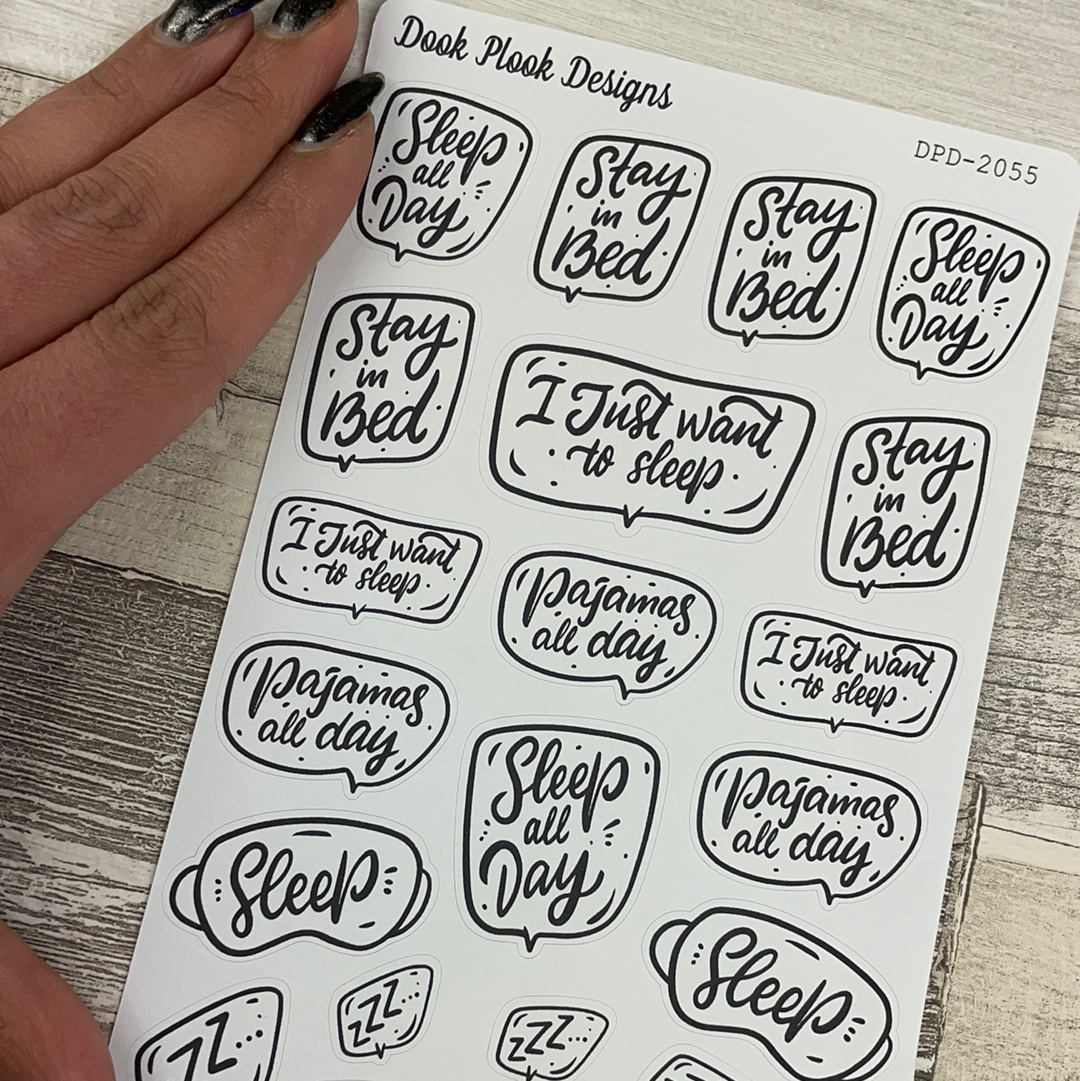 Dook Plook Designs
DPD-2055
Sleep
all
Day
Stay
in
Bed
Stay
in
Bed
Sleep
all
Day
Stay
in
Bed
I Just want
to sleep
Stay
in
Bed
I Just want
to sleep
Pajamas
all day
I Just want
to sleep
Pajamas
all day
Sleep
all
Day
Pajamas
all day
Sleep
Sleep
ZZ...
ZZZ...
ZZZ...